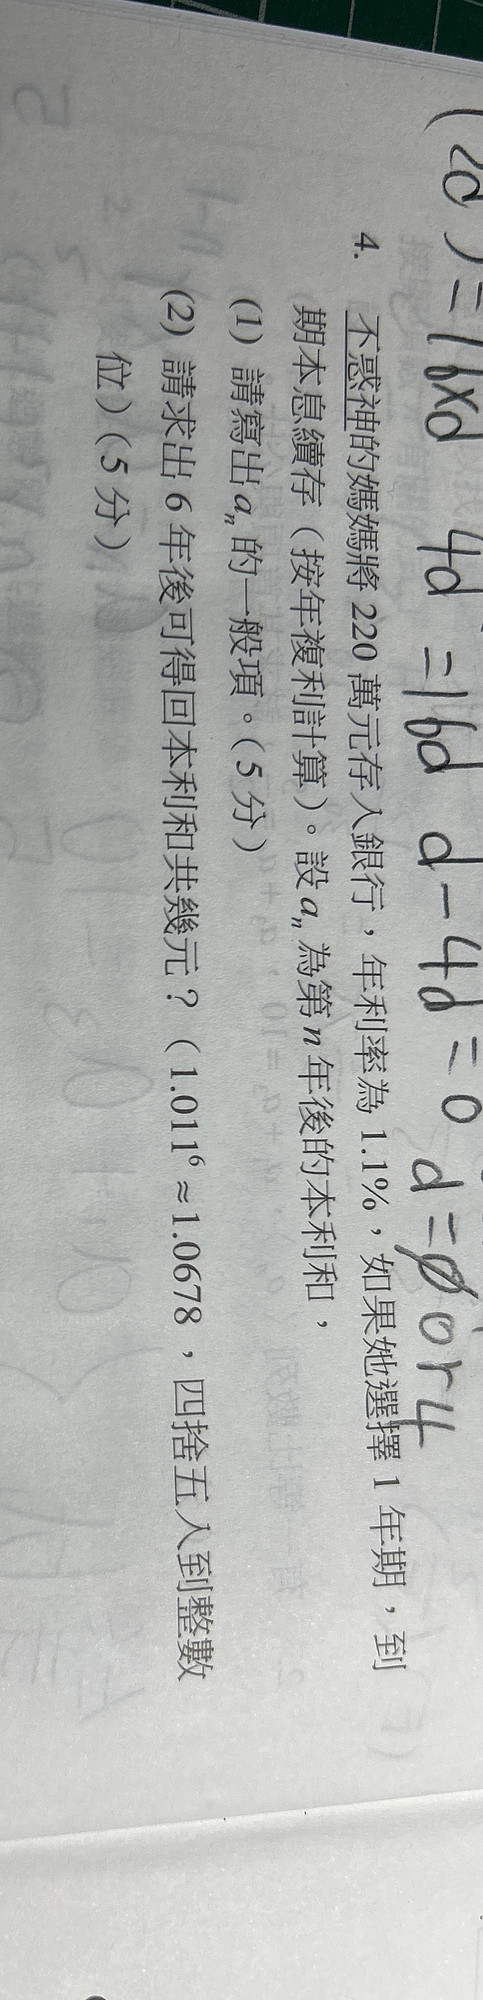 (2d)=16xd 4d=16d d-4d=0 d=0or4
4. 不惑神的媽媽將 220 萬元存入銀行，年利率為 1.1%，如果她選擇 1 年期，到
期本息續存（按年複利計算）。設 aₙ 為第 n 年後的本利和，
(1) 請寫出 aₙ 的一般項。（5 分）
(2) 請求出 6 年後可得回本利和共幾元？（1.011⁶≈1.0678，四捨五入到整數
位）（5 分）